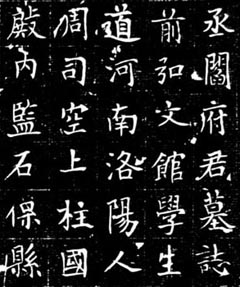 丞閻府君墓誌
前弘文館學生
道河南洛陽人
周司空上柱國
殿內監石保縣